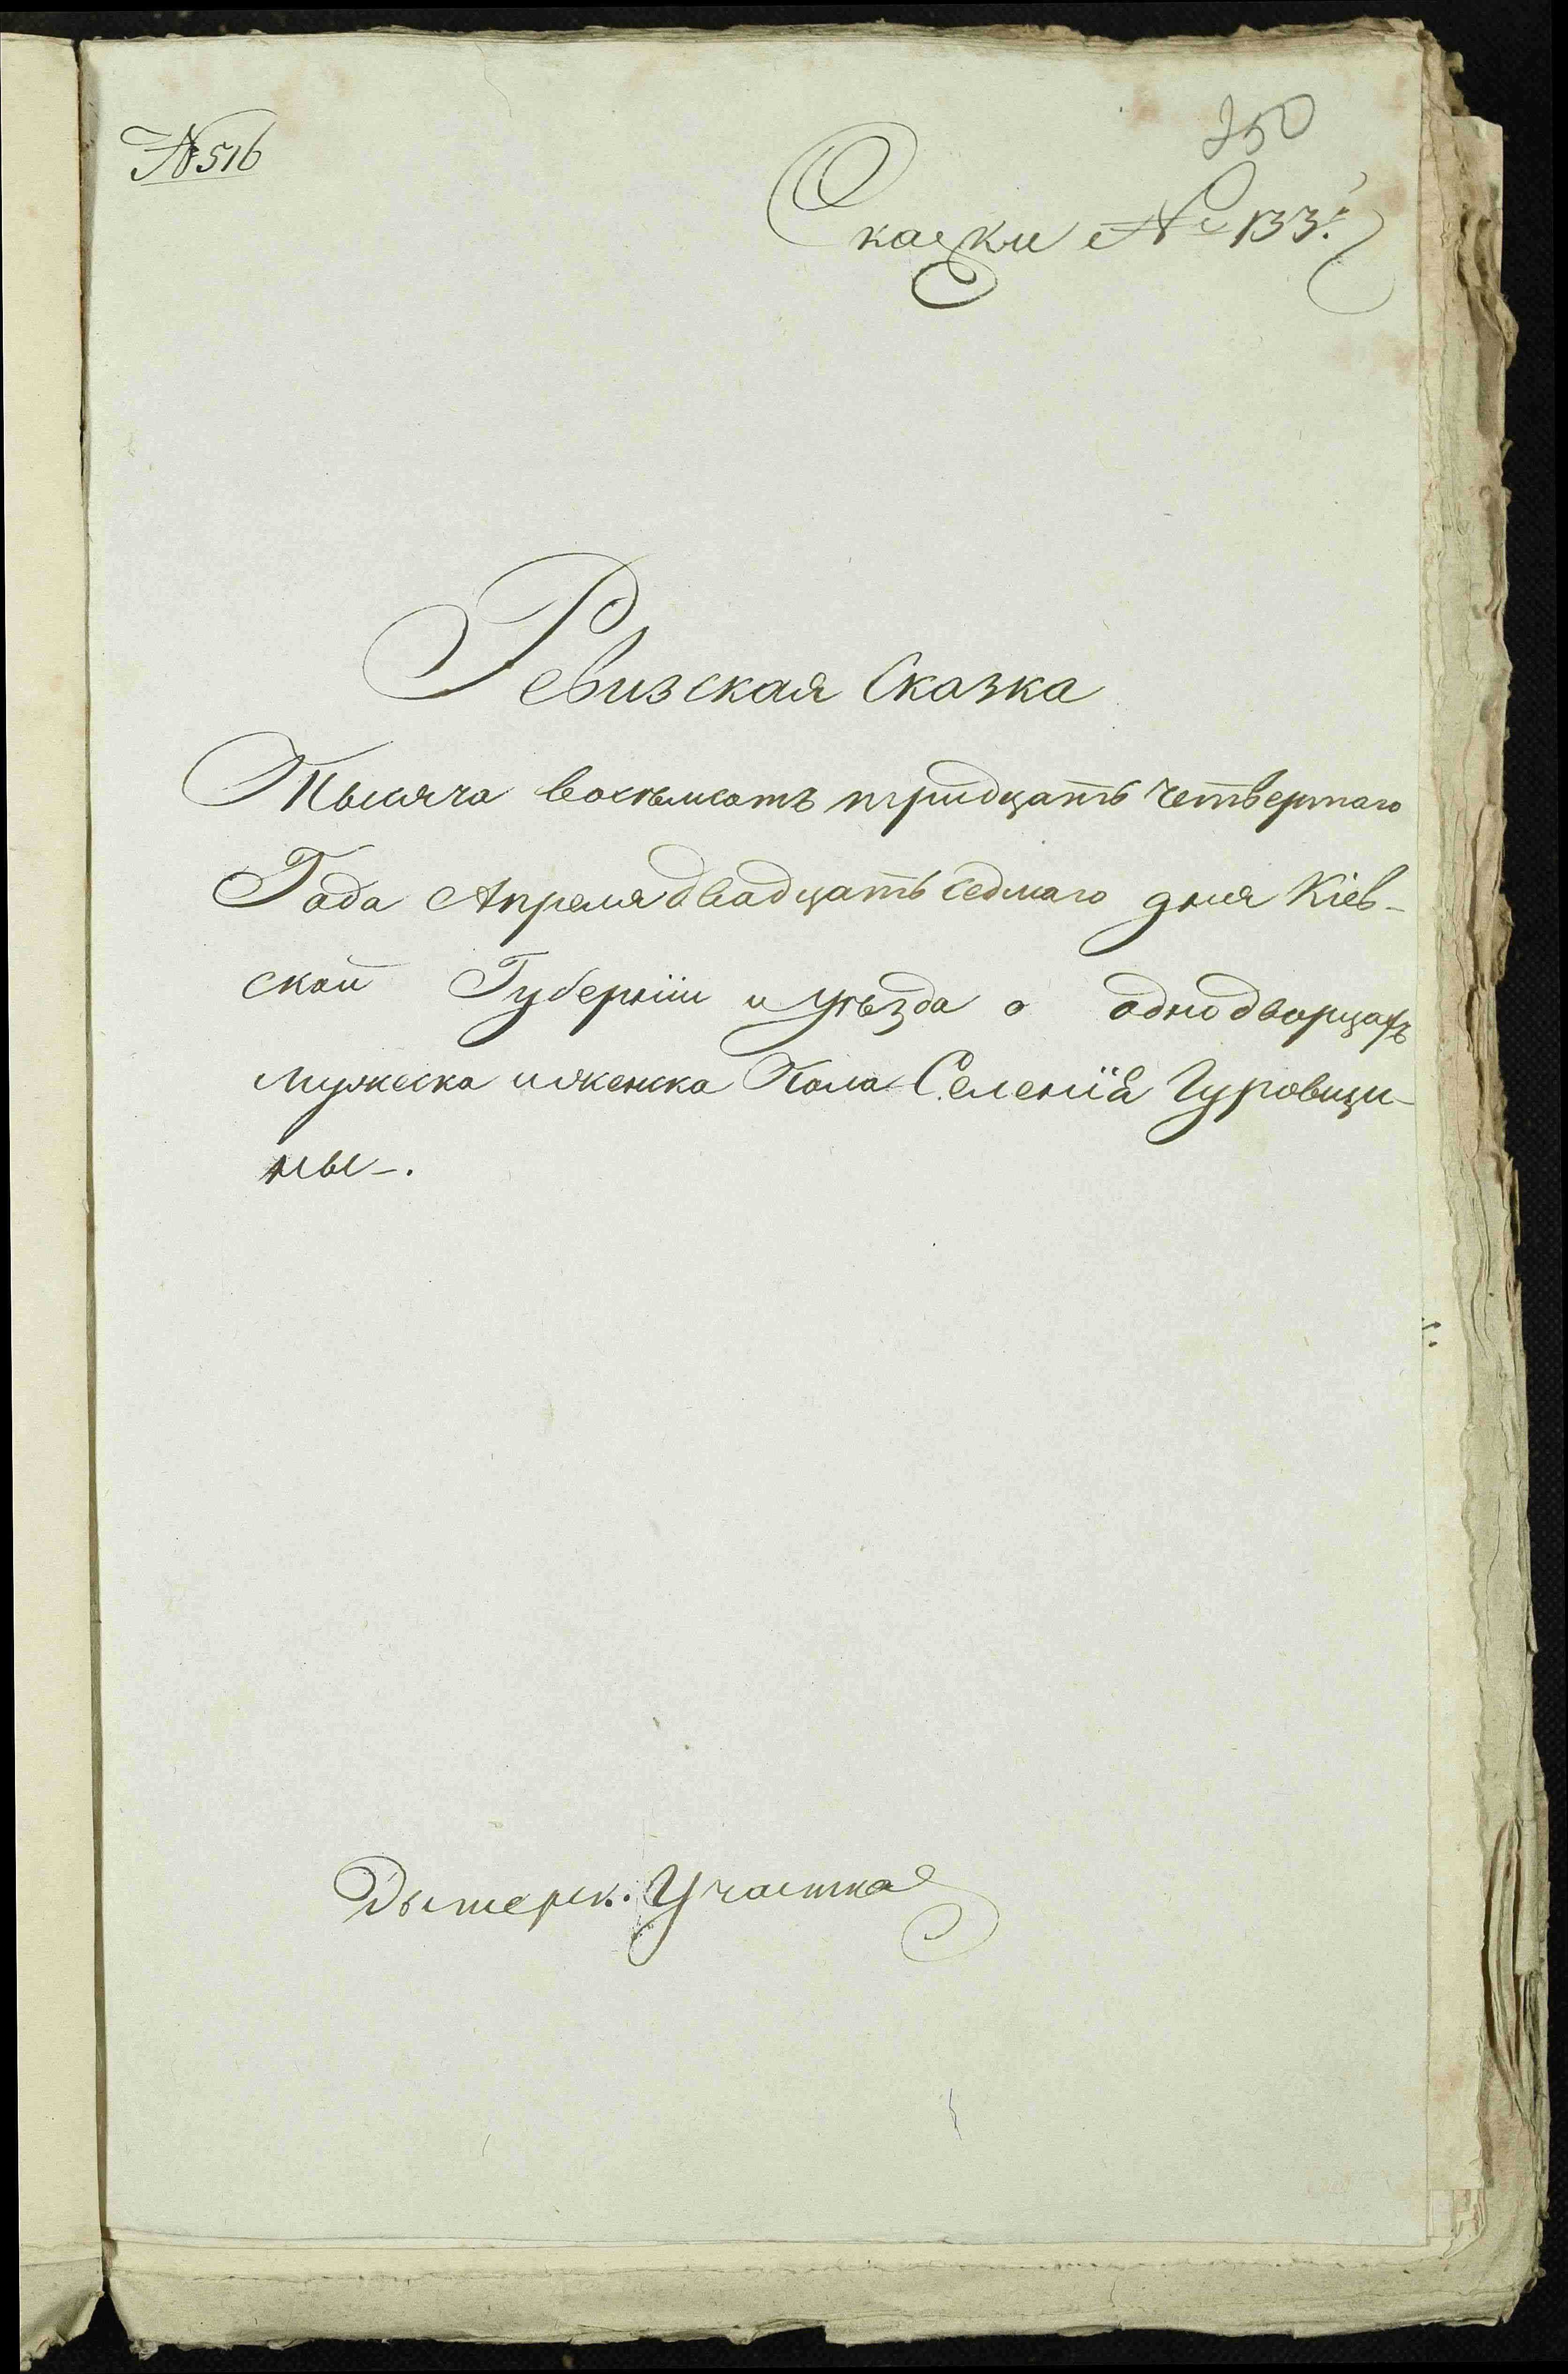 № 516
350
Сказки № 133.
Ревизская Сказка
Тысяча восемьсотъ тридцать четвертаго
Года Апреля двадцать седмаго дня Кіев-
ской Губерніи и уѣзда о однодворцахъ
мужеска и женска Пола Селенія Гуровщи-
ны.
Дымерск. Участка